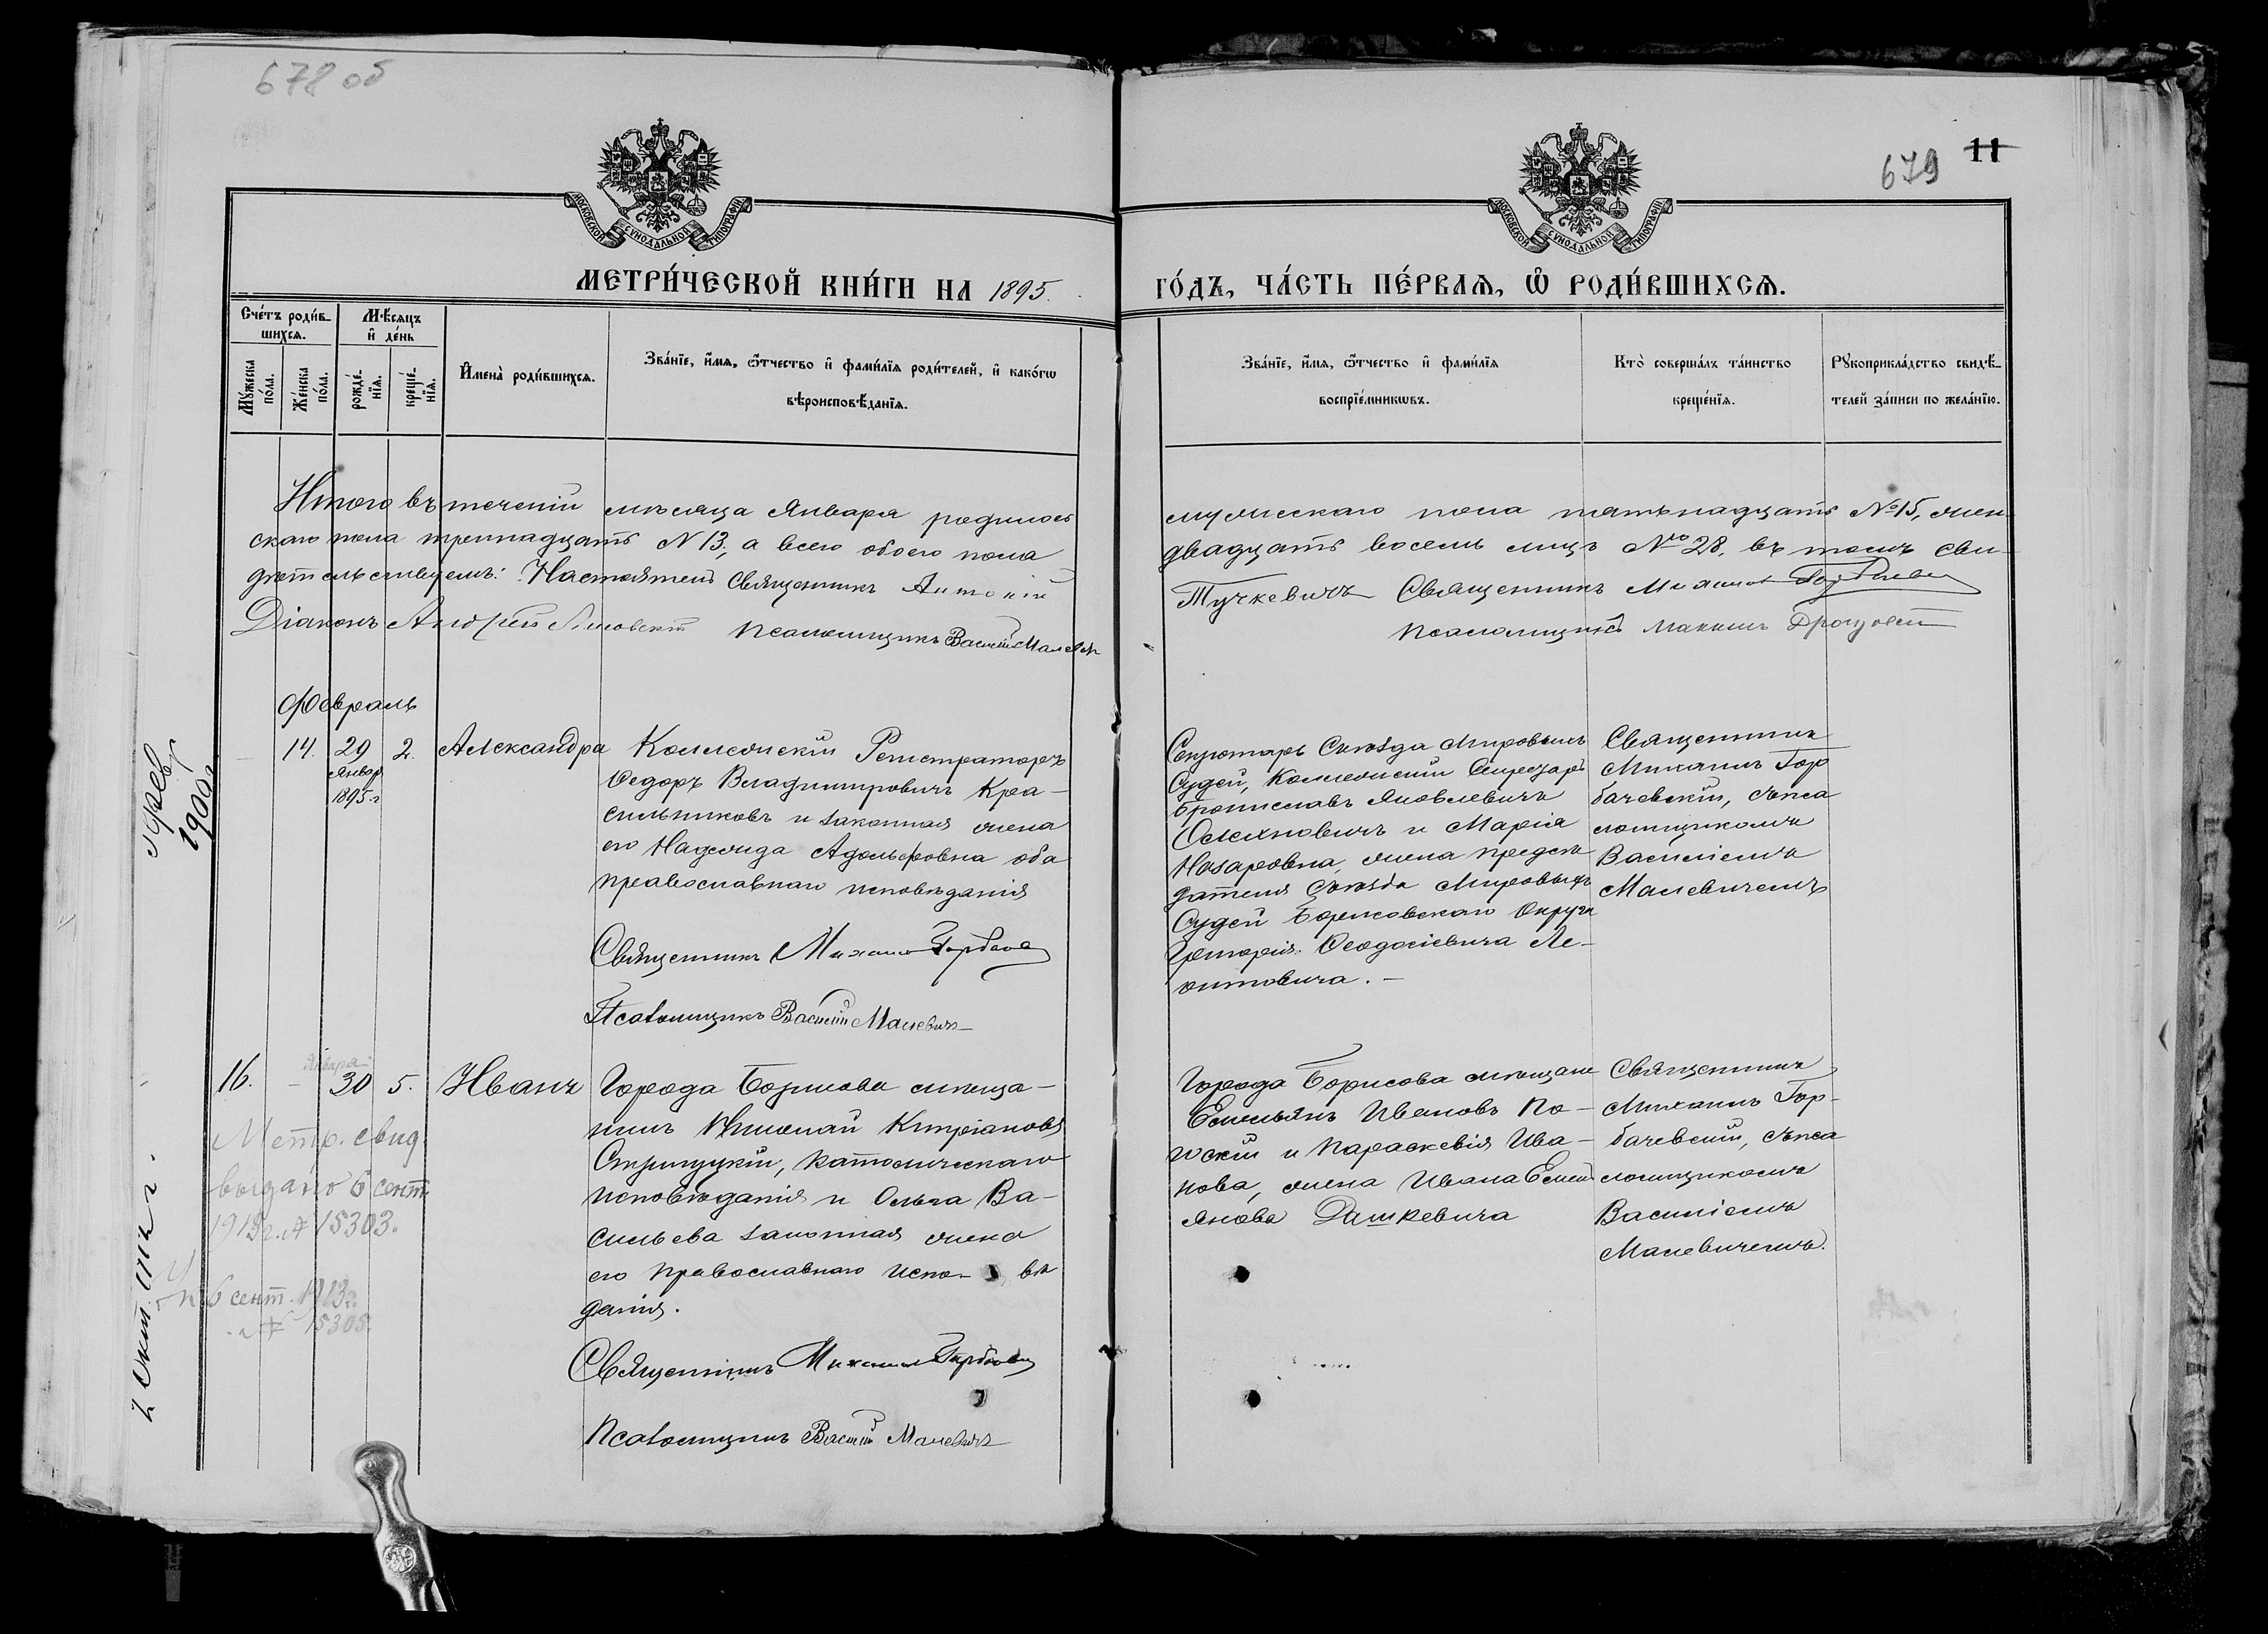 678 об
679
11
МОСКОВСКОЙ СѴНОДАЛЬНОЙ ТИПОГРАФІИ
МОСКОВСКОЙ СѴНОДАЛЬНОЙ ТИПОГРАФІИ
МЕТРИ́ЧЕСКОЙ КНИ́ГИ НА 1895.
ГО́ДЪ, ЧА́СТЬ ПЕ́РВАѦ, Ѡ҆ РОДИ́ВШИХСѦ.
Сче́тъ роди́в-
шихсѧ.
Мꙋ́жеска по́ла.
Же́нска по́ла.
Мѣ́сѧцъ
и҆ де́нь
рожде́-
нїѧ.
креще́-
нїѧ.
И҆мена̀ роди́вшихсѧ.
Зва́нїе, и҆́мѧ, ѻ҆́тчество и҆ фами́лїѧ роди́телей, и҆ како́гѡ
вѣроисповѣ́данїѧ.
Зва́нїе, и҆́мѧ, ѻ҆́тчество и҆ фами́лїѧ
воспрїе́мникѡвъ.
Кто̀ соверша́лъ та́инство
креще́нїѧ.
Рꙋкоприкла́дство свидѣ́-
телей за́писи по жела́нїю.
Итого въ теченіи мѣсяца Января родилось
мужескаго пола пятьнадцать №15, жен-
скаго пола тринадцать N 13, а всего обоего пола
двадцать восемь лицъ № 28, въ томъ сви-
дѣтельствуемъ: Настоятель Священникъ Антоній
Тучкевичъ Священникъ Михаилъ
Діаконъ Андрей Псаломщикъ Василій Малевичъ
Псаломщикъ
Февраль
14. 29 2. Александра
Январ
1895 г
Коллежскій Регистраторъ
Ѳедоръ Владимировичъ Кра-
сильниковъ и законная жена
его Надежда Адольфовна оба
православнаго исповѣданія
Священникъ Михаилъ
Псаломщикъ Василій Малевичъ
Секретарь Съѣзда Мировыхъ
Судей, Коллежскій Секретарь
Брониславъ Яковлевичъ
Олехновичъ и Марія
Назаровна, жена предсѣ-
дателя Съѣзда Мировыхъ
Судей Борисовскаго Округа
Григорія Ѳеодосіевича Ле-
онтовича.
Священникъ
Михаилъ Гор
бачевскій, съ пса
ломщикомъ
Василіемъ
Малевичемъ
16. – 30 5. Иванъ
Января
Города Борисова мѣща-
нинъ Николай Кипріановъ
исповѣданія и Ольга Ва-
сильева законная жена
его православнаго испо- вѣ
данія.
Священникъ Михаилъ
Псаломщикъ Василій Малевичъ
Города Борисова мѣщане
Емельянъ Ивановъ По-
и Параскевія Ива-
нова, жена Ивана Емель
янова Дашкевича
Священникъ
Михаилъ Гор-
бачевскій, съ пса
ломщикомъ
Василіемъ
Малевичемъ.
Метр. свид.
выдано 6 сент.
1913 г. № 15303.
6 сент. 1913 г.
№ 15305
1900